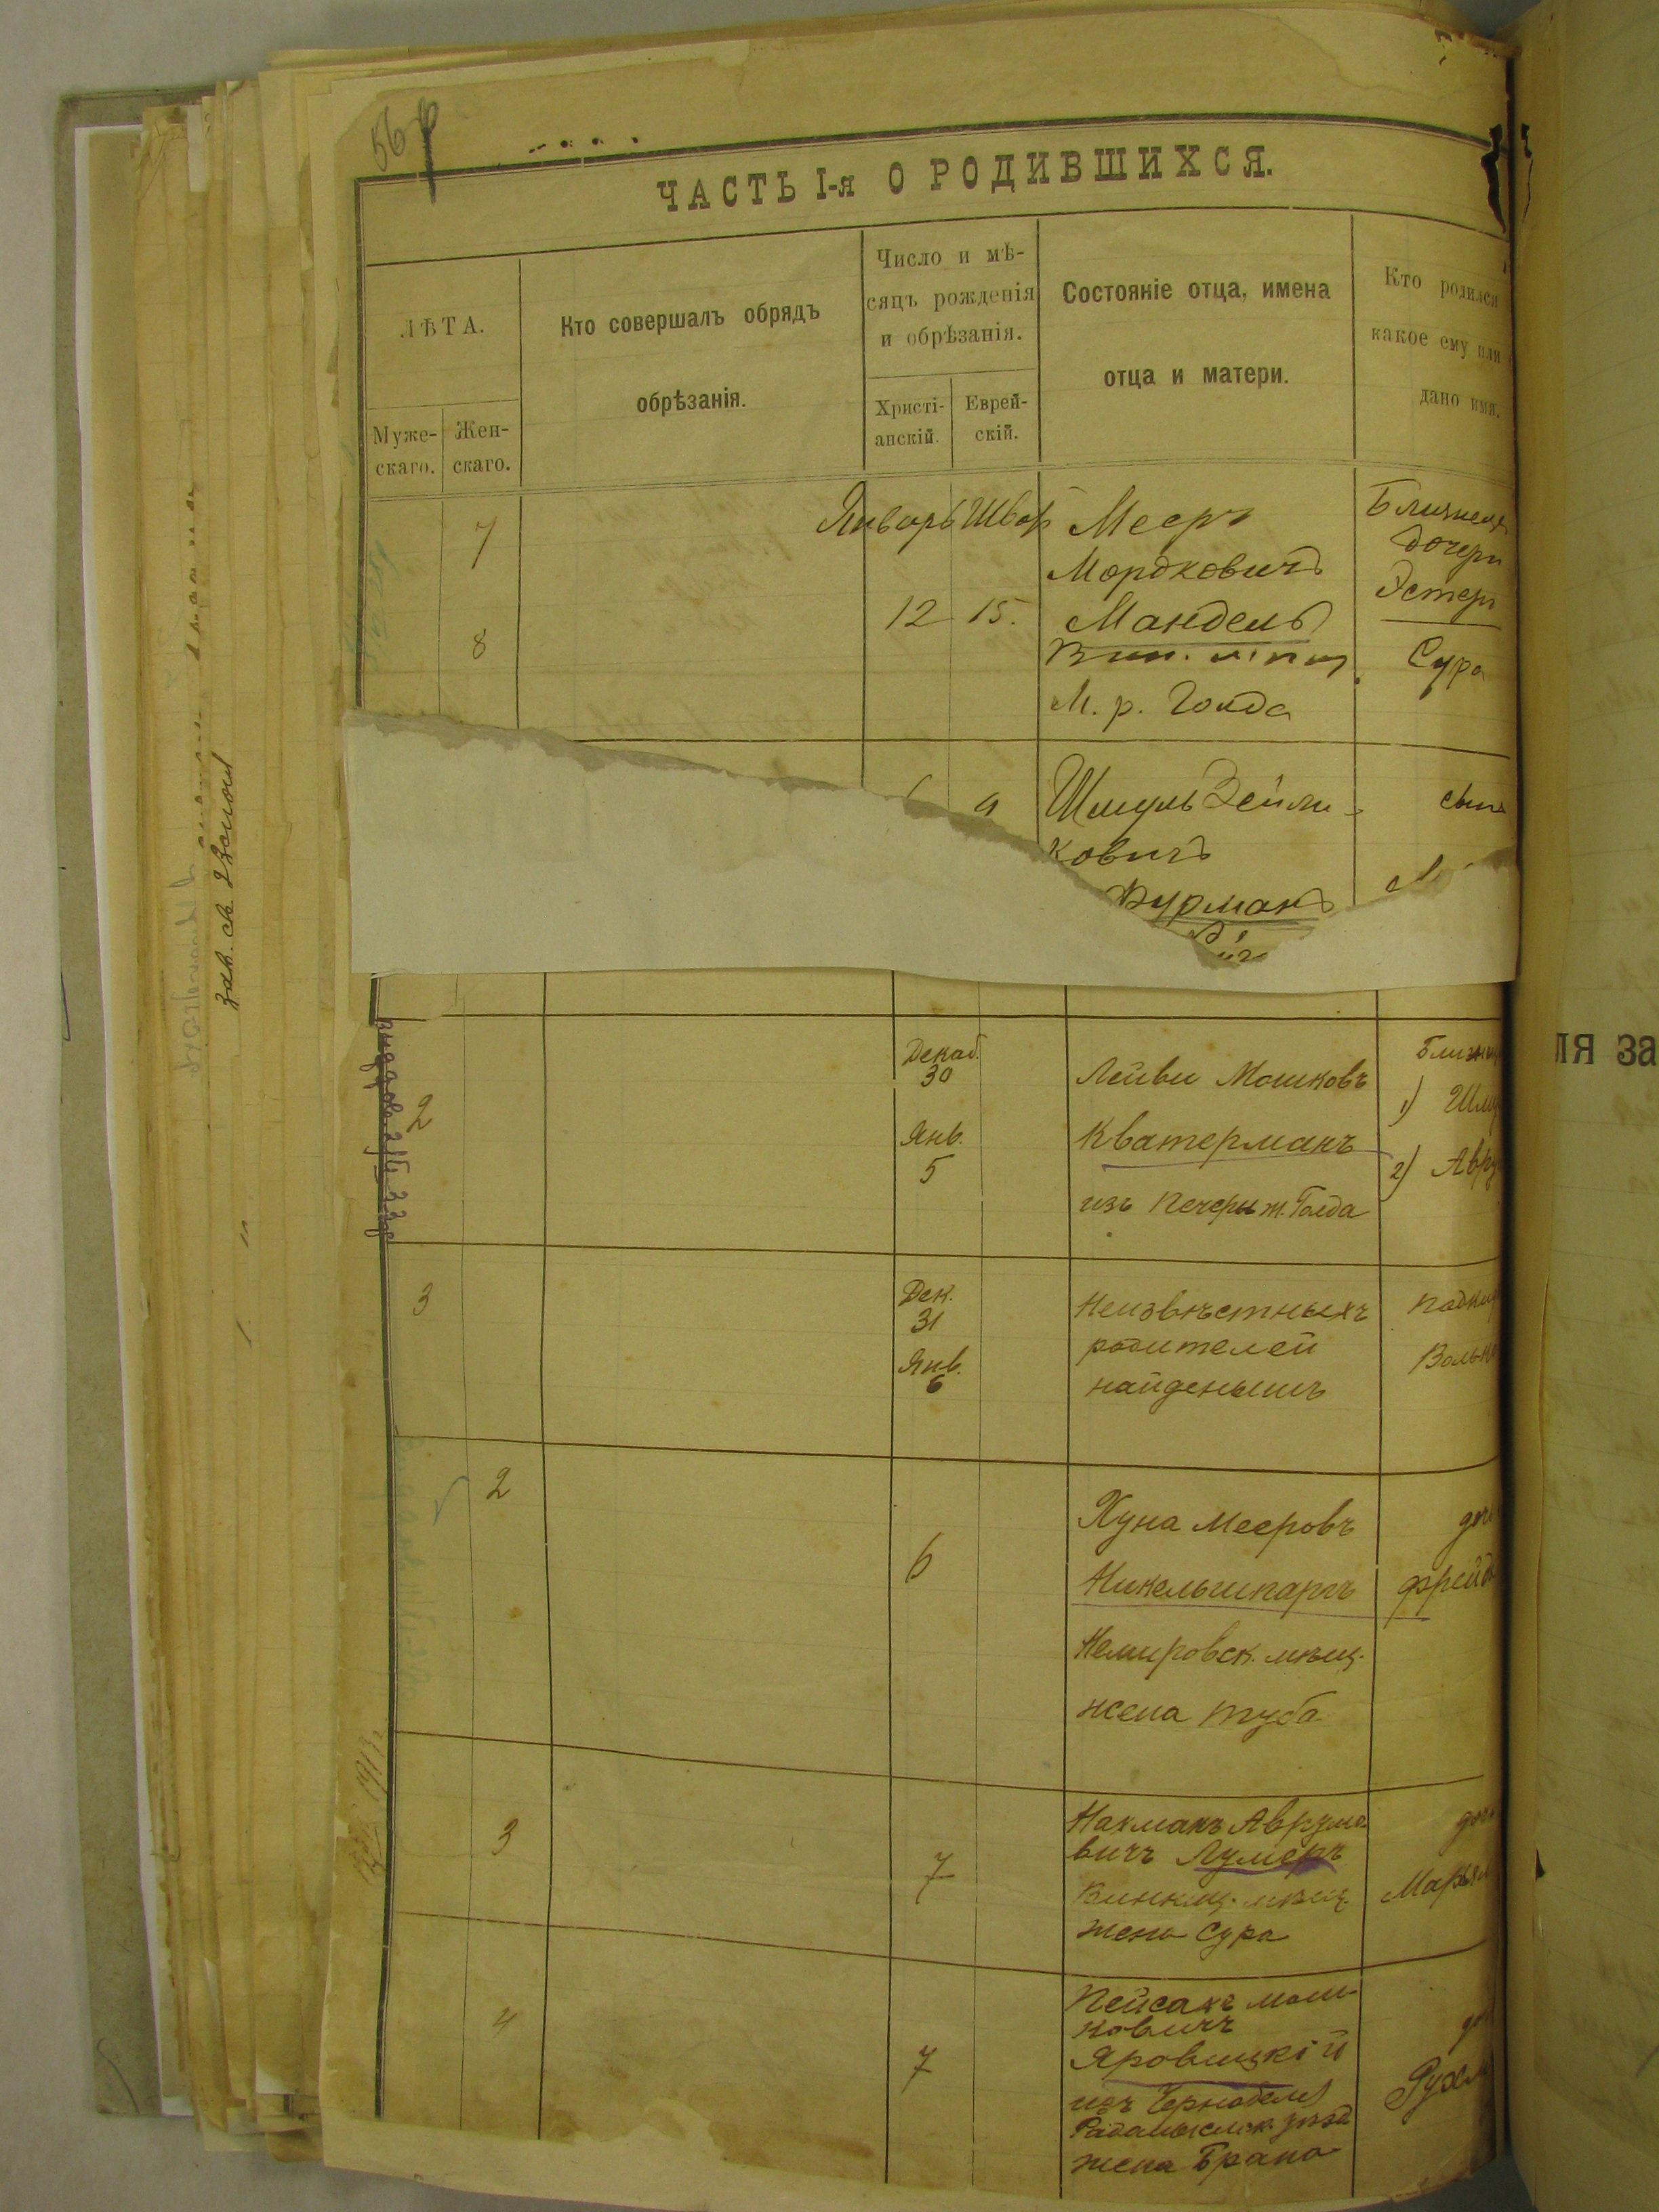 56
ЧАСТЬ I-я О РОДИВШИХСЯ.
ЛѢТА.
Муже-
скаго.
Жен-
скаго.
Кто совершалъ обрядъ
обрѣзанія.
Число и мѣ-
сяцъ рожденія
и обрѣзанія.
Христі-
анскій.
Еврей-
скій.
Состояніе отца, имена
отца и матери.
Кто родился
какое ему или
дано имя.
7
8
Январь Шват
12 15.
Мееръ
Мордковичъ
Мандель
М. р. Голда
Близнецы
дочери
Эстеръ
Сура
9
Шмуль Зейли-
ковичъ
Фурманъ
сынъ
2
Декаб.
30
Янв.
5
Лейви Мошковъ
Кватерманъ
изъ Печеры ж. Голда
Близнец
1) Шму
2) Авру
3
Дек.
31
Янв.
6
Неизвѣстныхъ
родителей
найденышъ
Подки
Вольк
2
6
Хуна Мееровъ
Никельшпаргъ
Немировск. мѣщ.
жена Туба
доч
Фрейд
3
7
Нахманъ Аврумо
вичъ Лумеръ
Винниц. мѣщ.
жена Сура
доч
Марьям
4
7
Пейсахъ Мош-
ковичъ
Яровицкій
изъ Чернобыля
Радомысльск. уѣзд
жена Брана
до
Рухл
ля за